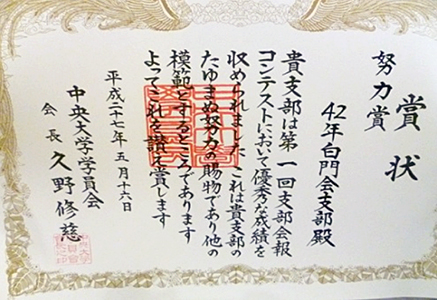 賞状
努力賞
42年白門会支部殿
貴支部は第一回支部会報
コンテストにおいて優秀な成績を
収められました これは貴支部の
たゆまぬ努力の賜物であり他の
模範とするところであります
よってこれを讃え賞します
平成二十七年五月十六日
中央大学学員会
会長 久野修慈